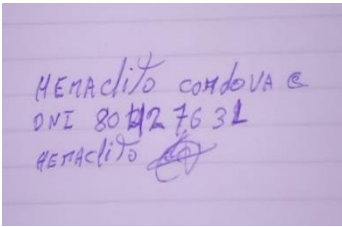 HERAclito CORdOVA C
DNI 80427631
HERAclito